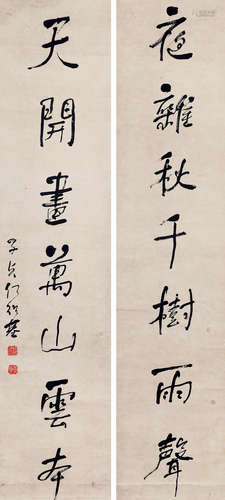 夜雜秋千樹雨聲
天開畫萬山雲本
子貞何紹基